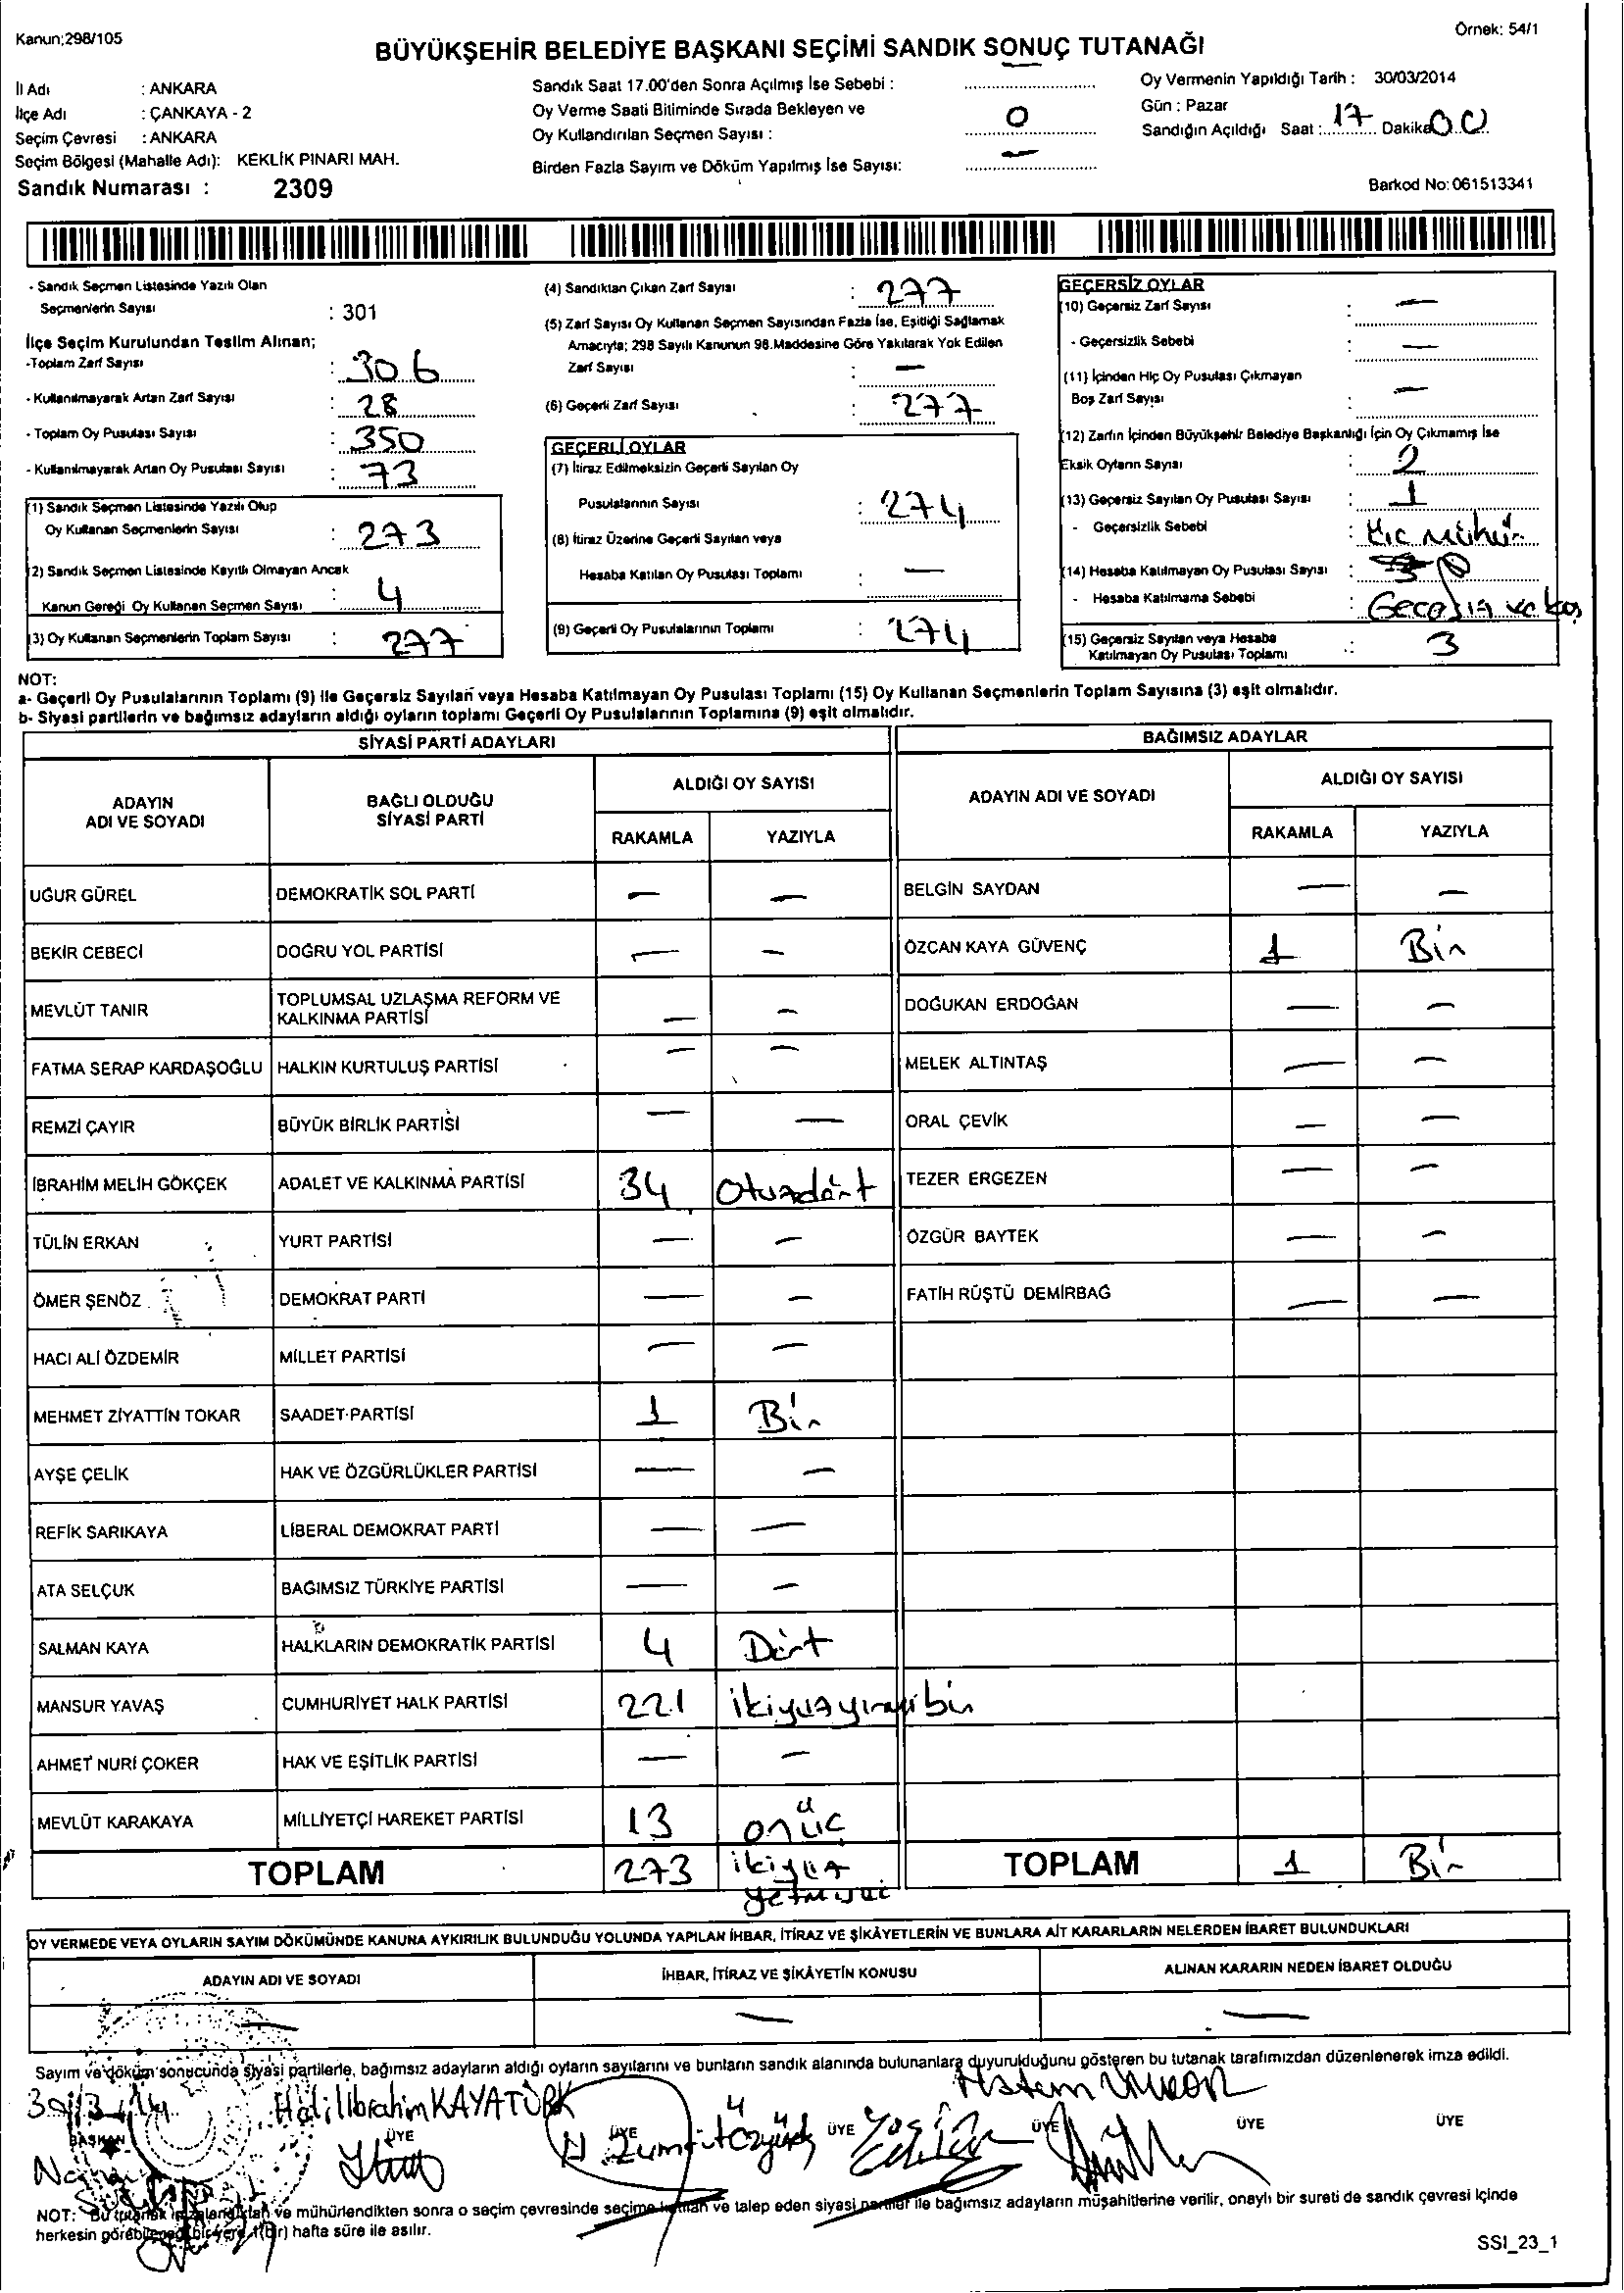 Kanun;298/105
Örnek: 54/1
BÜYÜKŞEHİR BELEDİYE BAŞKANI SEÇİMİ SANDIK SONUÇ TUTANAĞI
İl Adı : ANKARA
İlçe Adı : ÇANKAYA - 2
Seçim Çevresi : ANKARA
Seçim Bölgesi (Mahalle Adı): KEKLİK PINARI MAH.
Sandık Numarası : 2309
Sandık Saat 17.00'den Sonra Açılmış İse Sebebi : —
Oy Verme Saati Bitiminde Sırada Bekleyen ve
Oy Kullandırılan Seçmen Sayısı : 0
Birden Fazla Sayım ve Döküm Yapılmış İse Sayısı: —
Oy Vermenin Yapıldığı Tarih : 30/03/2014
Gün : Pazar
Sandığın Açıldığı Saat : 17 Dakika 00
Barkod No: 061513341
- Sandık Seçmen Listesinde Yazılı Olan
Seçmenlerin Sayısı : 301
İlçe Seçim Kurulundan Teslim Alınan;
-Toplam Zarf Sayısı : 306
- Kullanılmayarak Artan Zarf Sayısı : 28
- Toplam Oy Pusulası Sayısı : 350
- Kullanılmayarak Artan Oy Pusulası Sayısı : 73
(1) Sandık Seçmen Listesinde Yazılı Olup
Oy Kullanan Seçmenlerin Sayısı : 273
(2) Sandık Seçmen Listesinde Kayıtlı Olmayan Ancak
Kanun Gereği Oy Kullanan Seçmen Sayısı : 4
(3) Oy Kullanan Seçmenlerin Toplam Sayısı : 277
(4) Sandıktan Çıkan Zarf Sayısı : 277
(5) Zarf Sayısı Oy Kullanan Seçmen Sayısından Fazla İse, Eşitliği Sağlamak
Amacıyla; 298 Sayılı Kanunun 98.Maddesine Göre Yakılarak Yok Edilen
Zarf Sayısı : —
(6) Geçerli Zarf Sayısı : 277
GEÇERLİ OYLAR
(7) İtiraz Edilmeksizin Geçerli Sayılan Oy
Pusulalarının Sayısı : 274
(8) İtiraz Üzerine Geçerli Sayılan veya
Hesaba Katılan Oy Pusulası Toplamı : —
(9) Geçerli Oy Pusulalarının Toplamı : 274
GEÇERSİZ OYLAR
(10) Geçersiz Zarf Sayısı : —
- Geçersizlik Sebebi : —
(11) İçinden Hiç Oy Pusulası Çıkmayan
Boş Zarf Sayısı : —
(12) Zarfın İçinden Büyükşehir Belediye Başkanlığı İçin Oy Çıkmamış İse
Eksik Oyların Sayısı : 2
(13) Geçersiz Sayılan Oy Pusulası Sayısı : 1
- Geçersizlik Sebebi : Hiç mühür
(14) Hesaba Katılmayan Oy Pusulası Sayısı :
- Hesaba Katılmama Sebebi : Geçersiz ve boş
(15) Geçersiz Sayılan veya Hesaba
Katılmayan Oy Pusulası Toplamı : 3
NOT:
a- Geçerli Oy Pusulalarının Toplamı (9) ile Geçersiz Sayılan veya Hesaba Katılmayan Oy Pusulası Toplamı (15) Oy Kullanan Seçmenlerin Toplam Sayısına (3) eşit olmalıdır.
b- Siyasi partilerin ve bağımsız adayların aldığı oyların toplamı Geçerli Oy Pusulalarının Toplamına (9) eşit olmalıdır.
SİYASİ PARTİ ADAYLARI BAĞIMSIZ ADAYLAR
ADAYIN ADI VE SOYADI BAĞLI OLDUĞU SİYASİ PARTİ ALDIĞI OY SAYISI RAKAMLA YAZIYLA ADAYIN ADI VE SOYADI ALDIĞI OY SAYISI RAKAMLA YAZIYLA
UĞUR GÜREL DEMOKRATİK SOL PARTİ — — BELGİN SAYDAN — —
BEKİR CEBECİ DOĞRU YOL PARTİSİ — — ÖZCAN KAYA GÜVENÇ 1 Bir
MEVLÜT TANIR TOPLUMSAL UZLAŞMA REFORM VE KALKINMA PARTİSİ — — DOĞUKAN ERDOĞAN — —
FATMA SERAP KARDAŞOĞLU HALKIN KURTULUŞ PARTİSİ — — MELEK ALTINTAŞ — —
REMZİ ÇAYIR BÜYÜK BİRLİK PARTİSİ — — ORAL ÇEVİK — —
İBRAHİM MELİH GÖKÇEK ADALET VE KALKINMA PARTİSİ 34 Otuzdört TEZER ERGEZEN — —
TÜLİN ERKAN YURT PARTİSİ — — ÖZGÜR BAYTEK — —
ÖMER ŞENÖZ DEMOKRAT PARTİ — — FATİH RÜŞTÜ DEMİRBAĞ — —
HACI ALİ ÖZDEMİR MİLLET PARTİSİ — —
MEHMET ZİYATTİN TOKAR SAADET PARTİSİ 1 Bir
AYŞE ÇELİK HAK VE ÖZGÜRLÜKLER PARTİSİ — —
REFİK SARIKAYA LİBERAL DEMOKRAT PARTİ — —
ATA SELÇUK BAĞIMSIZ TÜRKİYE PARTİSİ — —
SALMAN KAYA HALKLARIN DEMOKRATİK PARTİSİ 4 Dört
MANSUR YAVAŞ CUMHURİYET HALK PARTİSİ 221 ikiyüzyirmibir
AHMET NURİ ÇOKER HAK VE EŞİTLİK PARTİSİ — —
MEVLÜT KARAKAYA MİLLİYETÇİ HAREKET PARTİSİ 13 onüç
TOPLAM 273 ikiyüz yetmişüç TOPLAM 1 Bir
OY VERMEDE VEYA OYLARIN SAYIM DÖKÜMÜNDE KANUNA AYKIRILIK BULUNDUĞU YOLUNDA YAPILAN İHBAR, İTİRAZ VE ŞİKÂYETLERİN VE BUNLARA AİT KARARLARIN NELERDEN İBARET BULUNDUKLARI
ADAYIN ADI VE SOYADI İHBAR, İTİRAZ VE ŞİKÂYETİN KONUSU ALINAN KARARIN NEDEN İBARET OLDUĞU
— — —
Sayım ve döküm sonucunda siyasi partilerle, bağımsız adayların aldığı oyların sayılarını ve bunların sandık alanında bulunanlara duyurulduğunu gösteren bu tutanak tarafımızdan düzenlenerek imza edildi.
Halil İbrahim KAYATÜRK
BAŞKAN ÜYE ÜYE ÜYE ÜYE ÜYE ÜYE
NOT: Bu tutanak imzalandıktan ve mühürlendikten sonra o seçim çevresinde seçime katılan ve talep eden siyasi partiler ile bağımsız adayların müşahitlerine verilir, onaylı bir sureti de sandık çevresi içinde
herkesin görebileceği bir yere 1(bir) hafta süre ile asılır.
SSI_23_1